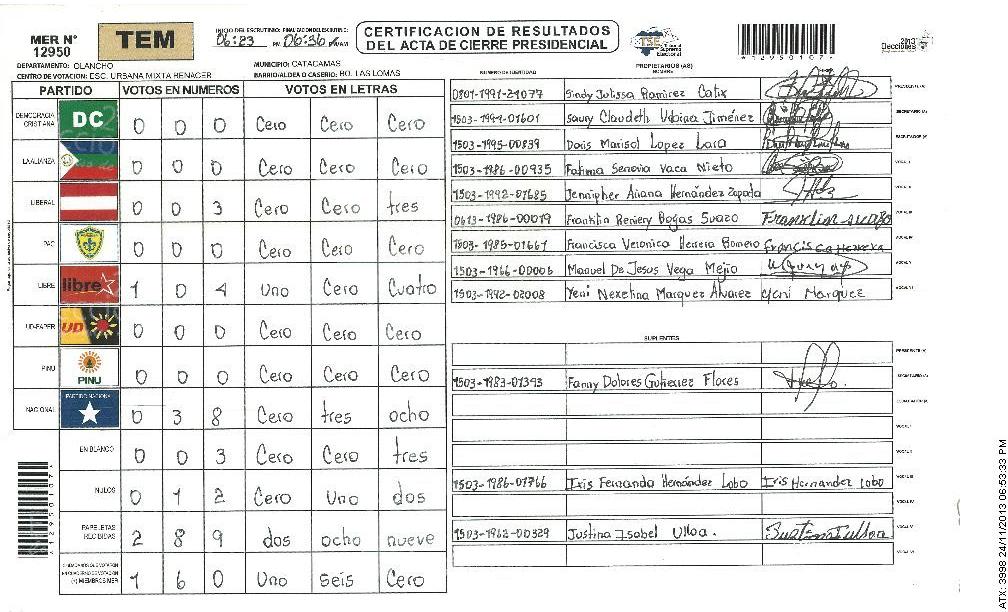 MER N° 12950
TEM
INICIO DEL ESCRUTINIO: 06:23 PM
FINALIZACION DEL ESCRUTINIO: 06:36
CERTIFICACION DE RESULTADOS
DEL ACTA DE CIERRE PRESIDENCIAL
TSE Tribunal Supremo Electoral
2013 Elecciones
*12950107*
DEPARTAMENTO: OLANCHO
MUNICIPIO: CATACAMAS
CENTRO DE VOTACION: ESC. URBANA MIXTA RENACER
BARRIO/ALDEA O CASERIO: BO. LAS LOMAS
PARTIDO VOTOS EN NUMEROS VOTOS EN LETRAS
DEMOCRACIA CRISTIANA DC 0 0 0 Cero Cero Cero
LA ALIANZA 0 0 0 Cero Cero Cero
LIBERAL 0 0 3 Cero Cero tres
PAC 0 0 0 Cero Cero Cero
LIBRE libre 1 0 4 Uno Cero Cuatro
UD-FAPER UD 0 0 0 Cero Cero Cero
PINU PINU 0 0 0 Cero Cero Cero
NACIONAL PARTIDO NACIONAL 0 3 8 Cero tres ocho
EN BLANCO 0 0 3 Cero Cero tres
NULOS 0 1 2 Cero Uno dos
PAPELETAS RECIBIDAS 2 8 9 dos ocho nueve
CIUDADANOS QUE VOTARON EN CUADERNO DE VOTACION (+) MIEMBROS MER 1 6 0 Uno seis Cero
*12950107*
NUMERO DE IDENTIDAD PROPIETARIOS (AS) NOMBRE
0801-1991-21077 Sindy Julissa Ramirez Calix PRESIDENTE (A)
1503-1991-01601 Saury Claudeth Urbina Jiménez SECRETARIO (A)
1503-1995-00839 Doris Marisol Lopez Lara ESCRUTADOR (A)
1503-1986-00935 Fatima Senovia Vaca Nieto VOCAL I
1503-1992-01685 Jennipher Ariana Hernández Zapada VOCAL II
0613-1986-00019 Franklin Reniery Bogas Suazo Franklin suazo VOCAL III
1503-1985-01667 Francisca Veronica Herrera Romero Francisca Herrera VOCAL IV
1503-1966-00006 Manuel De Jesus Vega Mejio VOCAL V
1503-1992-02008 Yeni Nexelina Marquez Alvarez Yeni Marquez VOCAL VI
SUPLENTES
PRESIDENTE (A)
1503-1983-01393 Fanny Dolores Gutierrez Flores SECRETARIO (A)
ESCRUTADOR (A)
VOCAL I
VOCAL II
1503-1986-01766 Iris Fernanda Hernández Lobo Iris Hernandez Lobo VOCAL III
VOCAL IV
1503-1962-00329 Justina Isabel Ulloa. VOCAL V
VOCAL VI
ATX: 3998 24/11/2013 06:53:33 PM